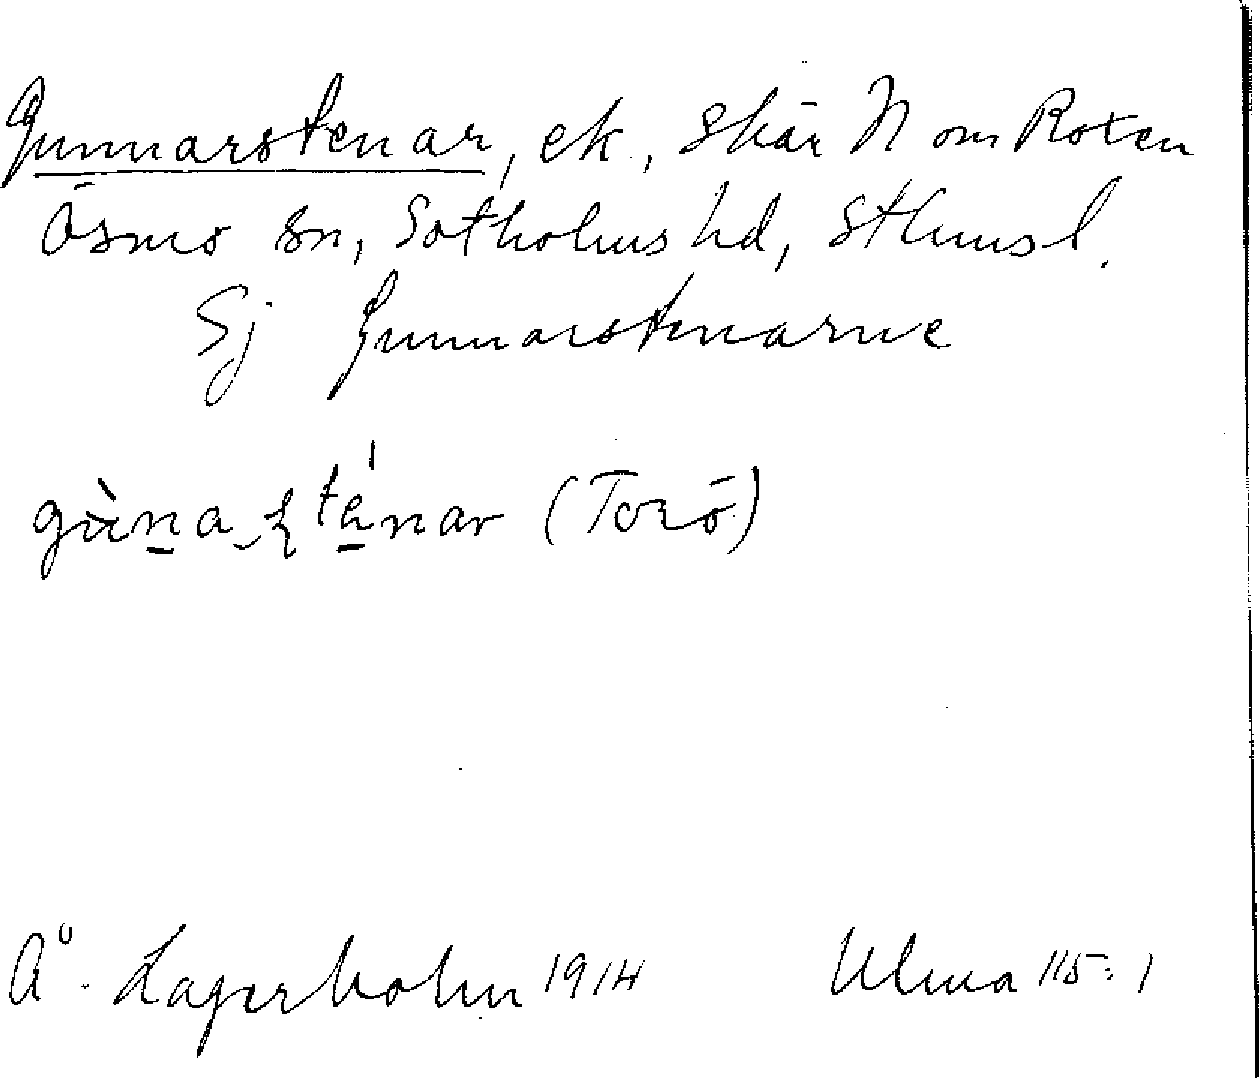 Gunnarstenar, ek., skär N om Roten
Ösmo sn, Sotholms hd, Sthms l.
Sj Gunnarstenarne
(Torö)
Å. Lagerholm 1914 Ulma 115:1